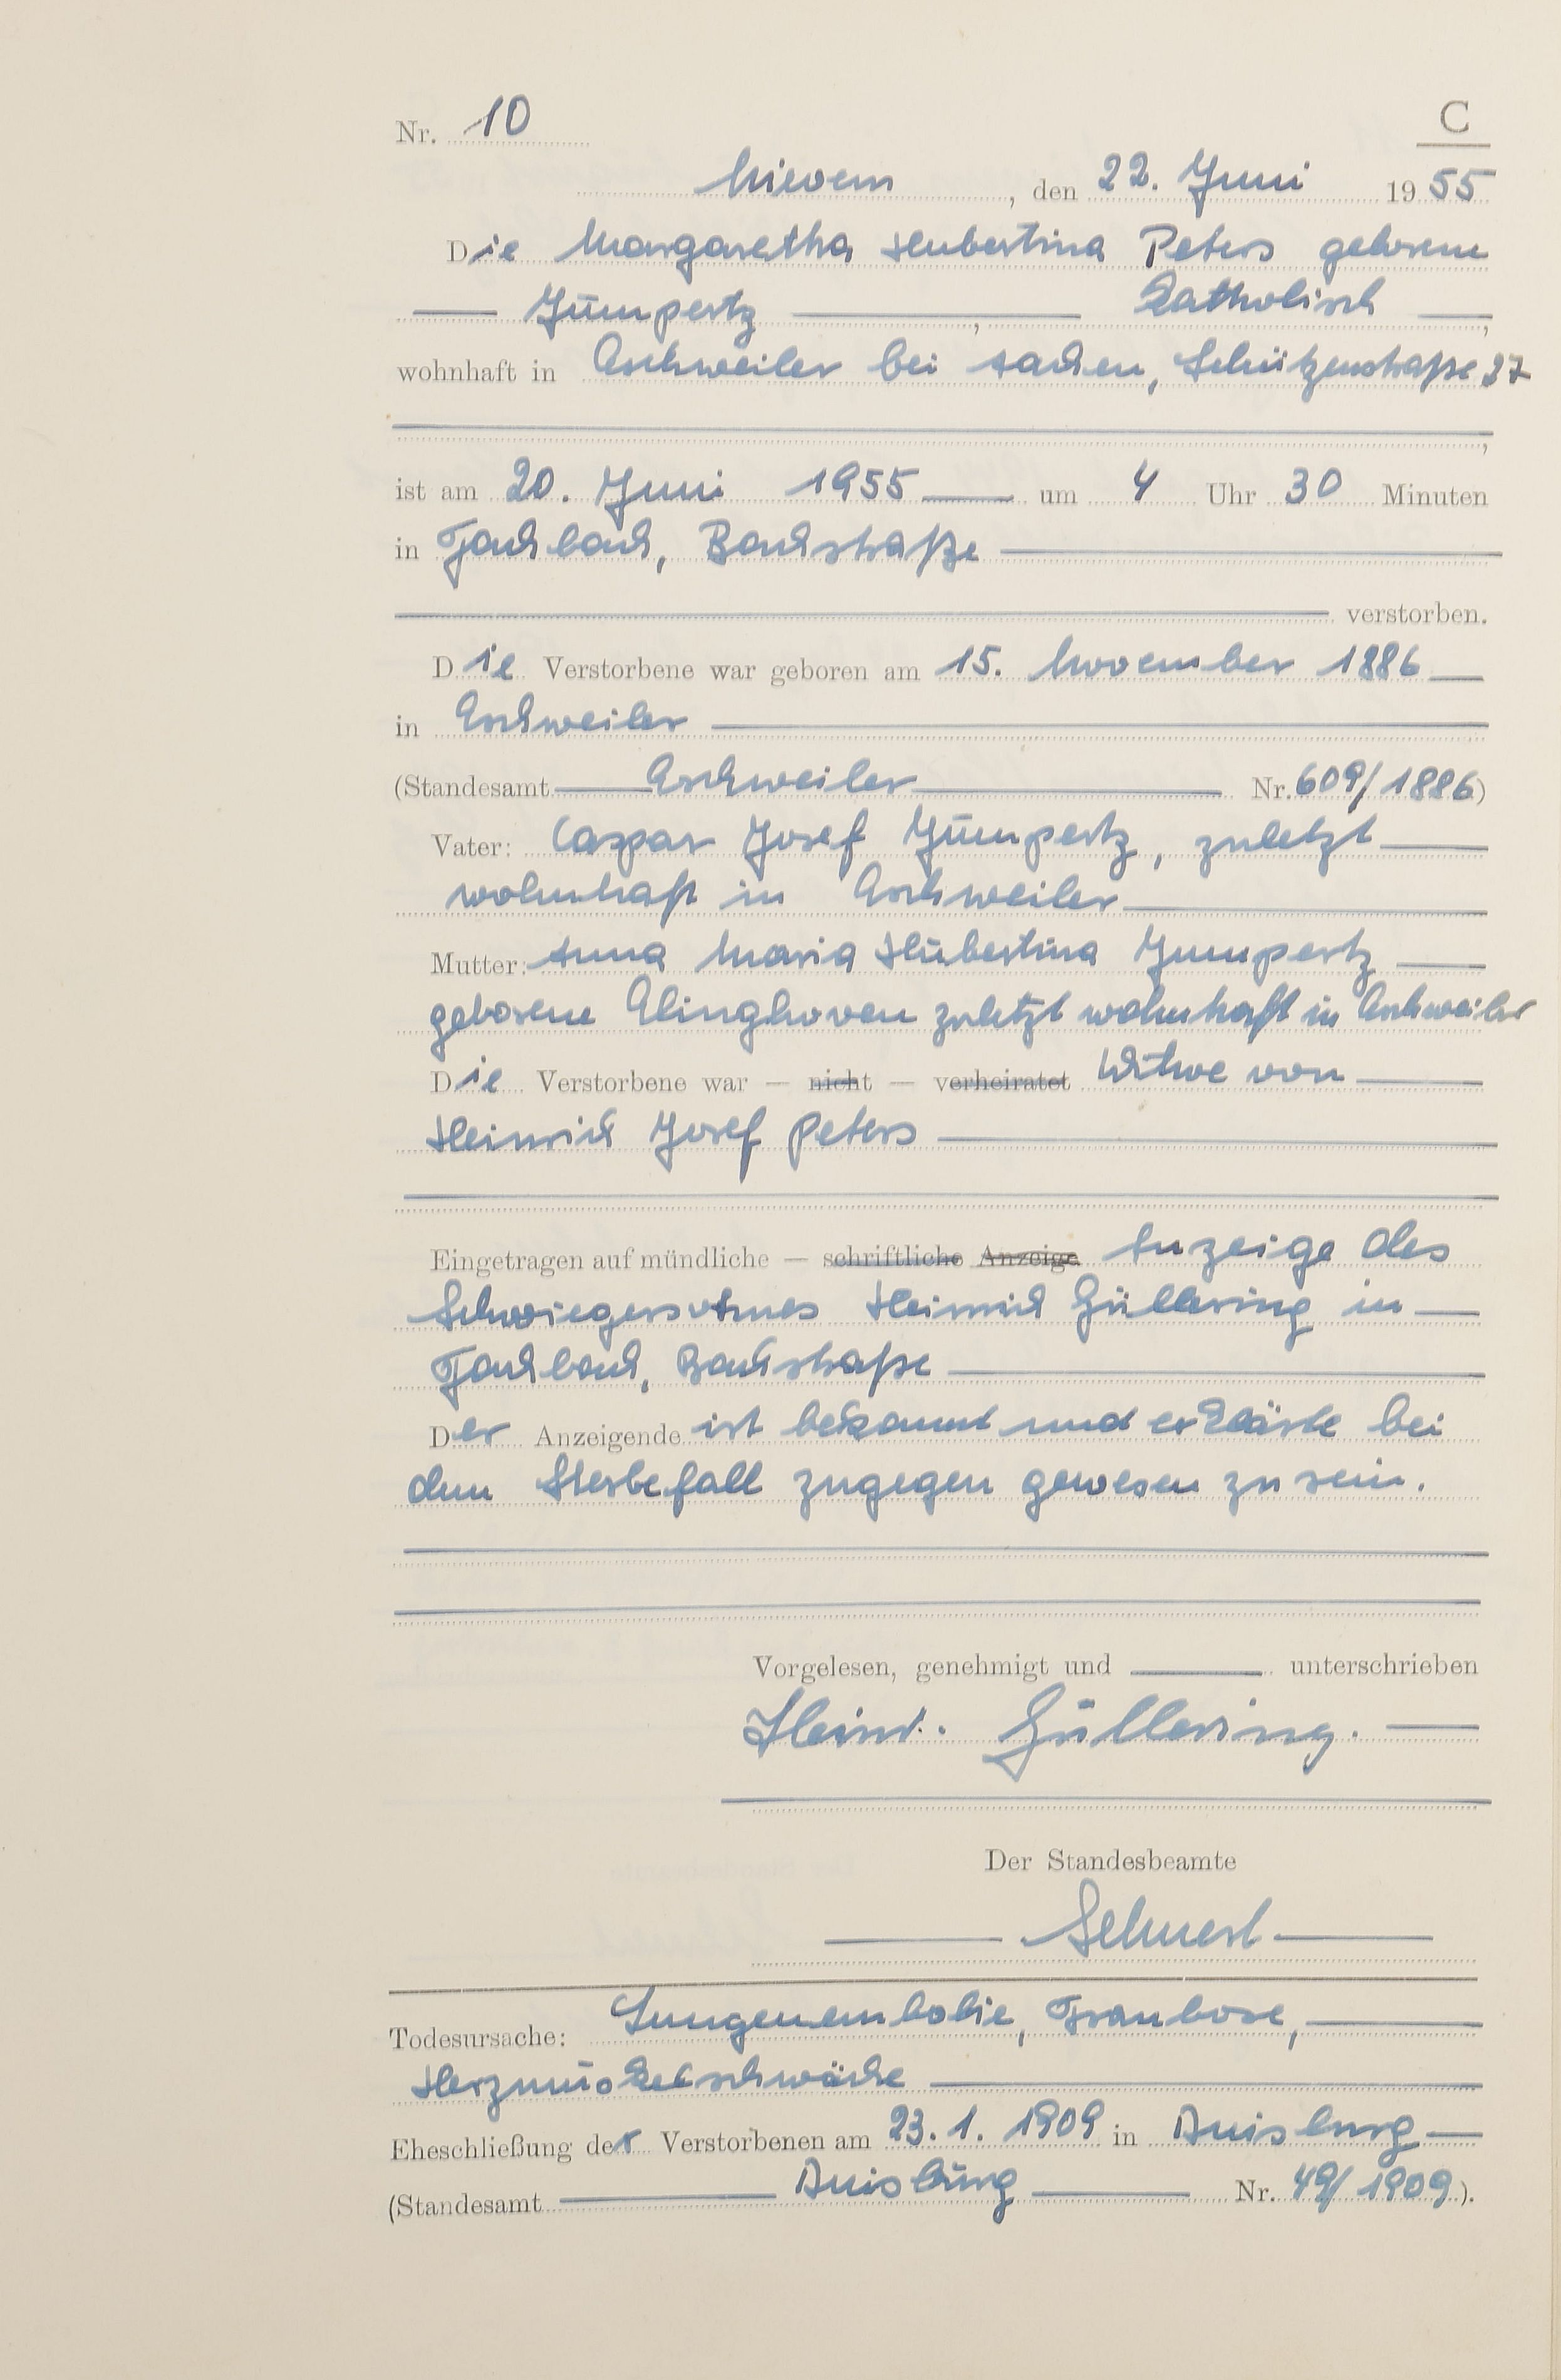 Nr. 10
C
Nievern, den 22. Juni 1955
Die Margaretha Hubertina Peters geborene
Jümpertz, katholisch,
wohnhaft in Eschweiler bei Aachen, Schützenstraße 37
,
ist am 20. Juni 1955 um 4 Uhr 30 Minuten
in Fachbach, Bachstraße
verstorben.
Die Verstorbene war geboren am 15. November 1886
in Eschweiler
(Standesamt Eschweiler Nr. 609/1886)
Vater: Caspar Josef Jümpertz, zuletzt
wohnhaft in Eschweiler
Mutter: Anna Maria Hubertina Jumpertz
geborene Elinghoven zuletzt wohnhaft in Eschweiler
Die Verstorbene war — nicht — verheiratet Witwe von
Heinrich Josef Peters
Eingetragen auf mündliche — schriftliche Anzeige Anzeige des
Schwiegersohnes Heinrich Güllering in
Fachbach, Bachstraße
Der Anzeigende ist bekannt und erklärte bei
dem Sterbefall zugegen gewesen zu sein.
Vorgelesen, genehmigt und unterschrieben
Heinr. Güllering.
Der Standesbeamte
Todesursache: Lungenembolie, Trombose,
Herzmuskelschwäche
Eheschließung der Verstorbenen am 23.1.1909 in Duisburg
(Standesamt Duisburg Nr. 49/1909).